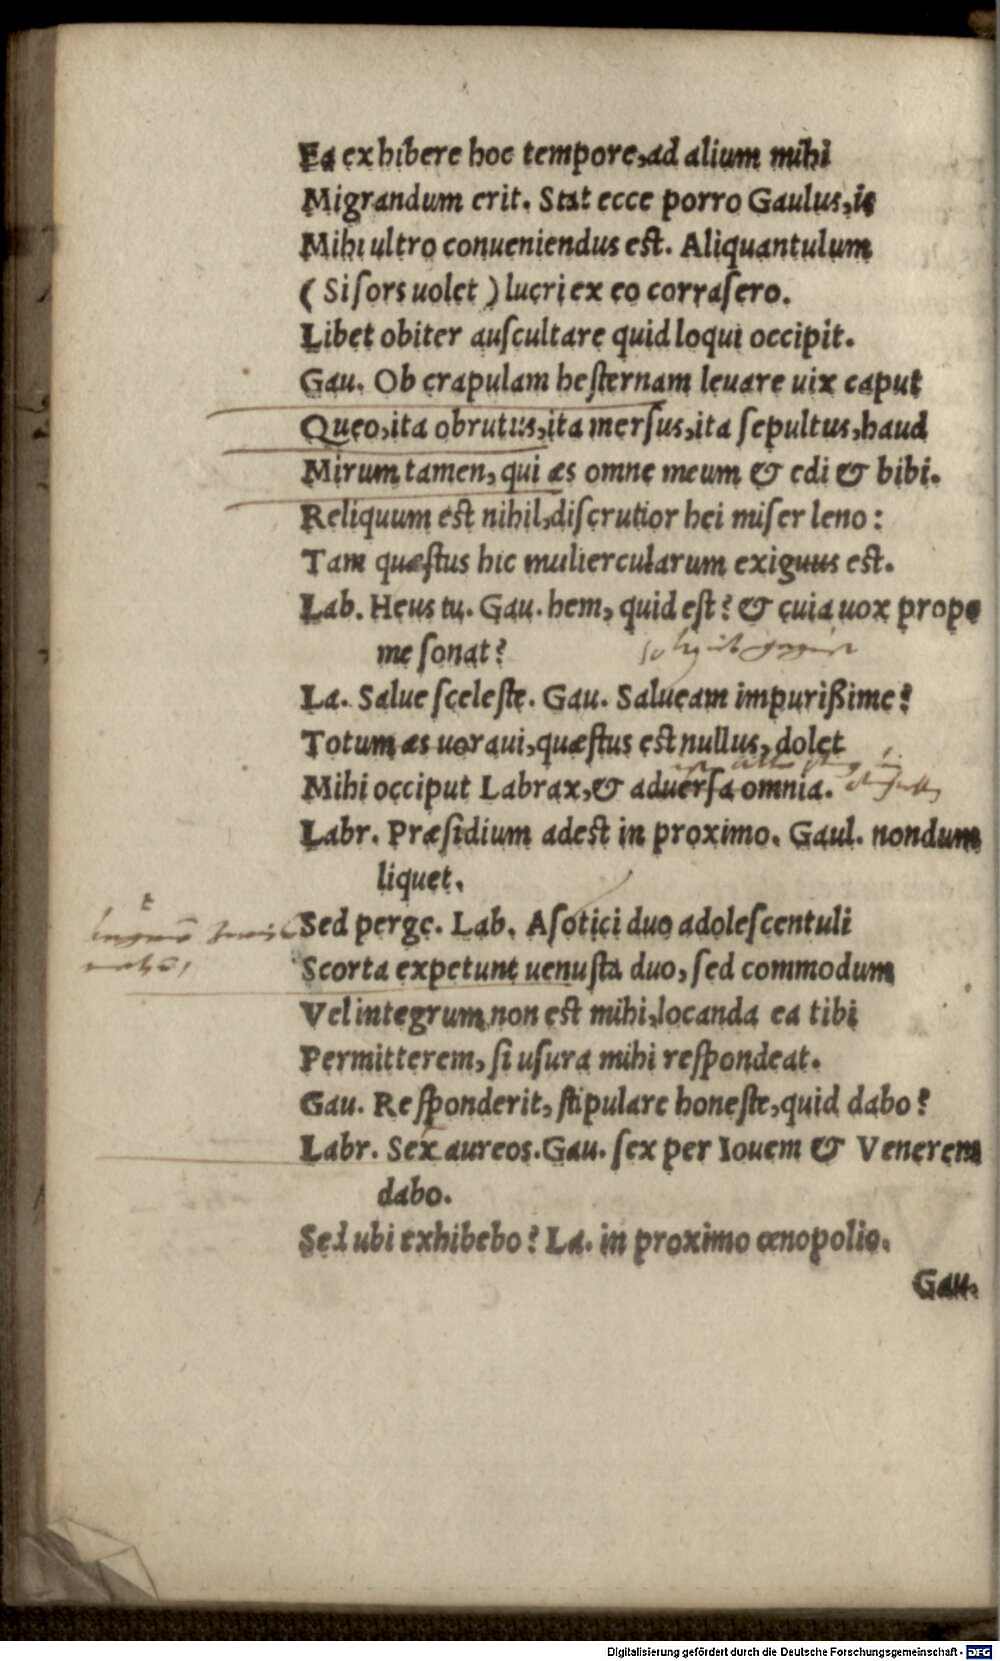 Ea exhibere hoc tempore, ad alium mihi
Migrandum erit. Stat ecce porro Gaulus, is
Mihi ultro conueniendus est. Aliquantulum
( Si ſors uolet ) lucri ex eo corraſero.
Libet obiter auſcultare quid loqui occipit.
Gau. Ob crapulam heſternam leuare uix caput
Queo, ita obrutus, ita merſus, ita ſepultus, haud
Mirum tamen, qui æs omne meum & edi & bibi.
Reliquum est nihil, diſcrutior hei miſer leno:
Tam quæſtus hic muliercularum exiguus est.
Lab. Heus tu. Gau. hem, quid est? & cuia uox prope
me ſonat?
La. Salue ſceleſte. Gau. Salueam impurißime?
Totum æs uoraui, quæſtus est nullus, dolet
Mihi occiput Labrax, & aduerſa omnia.
Labr. Præſidium adest in proximo. Gaul. nondum
liquet.
Sed perge. Lab. Aſotici duo adoleſcentuli
Scorta expetunt uenuſta duo, ſed commodum
Vel integrum non est mihi, locanda ea tibi
Permitterem, ſi uſura mihi reſpondeat.
Gau. Reſponderit, ſtipulare honeſte, quid dabo?
Labr. Sex aureos. Gau. ſex per Iouem & Venerem
dabo.
Sed ubi exhibebo? La. in proximo œnopolio.
Gau.
Digitalisierung gefördert durch die Deutsche Forschungsgemeinschaft - DFG